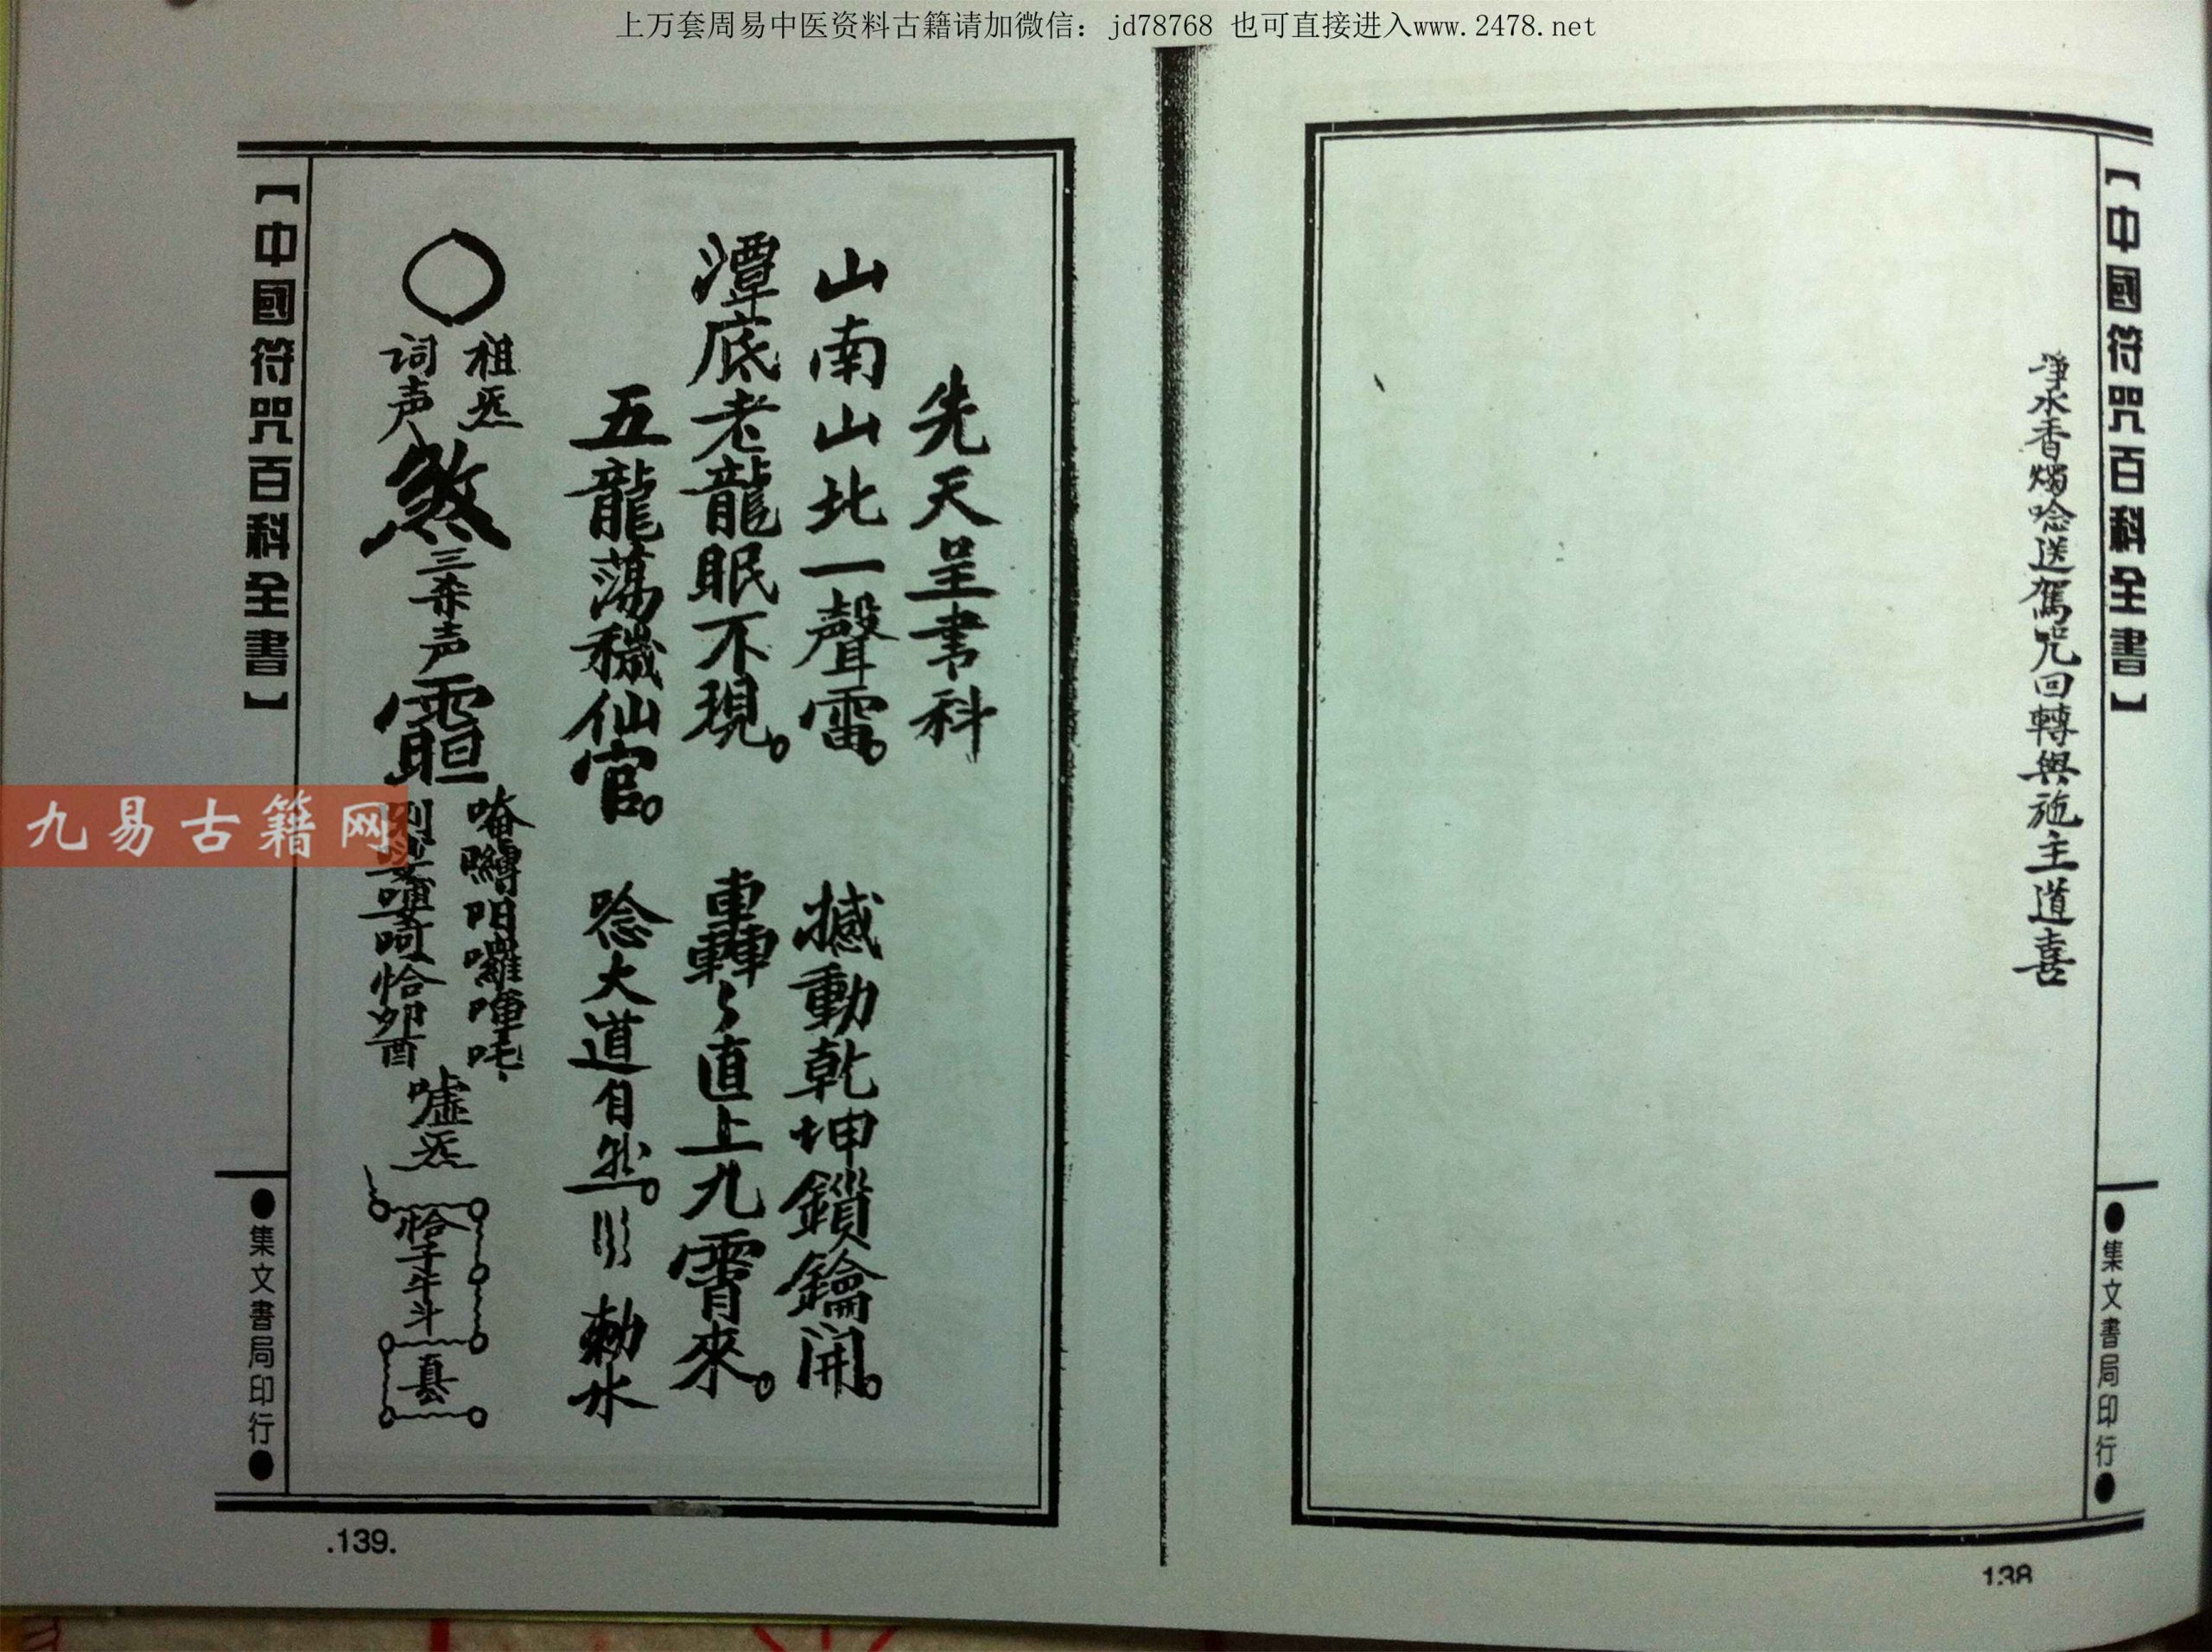 上万套周易中医资料古籍请加微信：jd78768 也可直接进入www.2478.net
【中國符咒百科全書】
●集文書局印行●
淨水香燭唸送駕咒回轉與施主道喜
138
先天呈書科
山南山北一聲雷。 撼動乾坤鎖鑰開。
潭底老龍眠不現。 轟々直上九霄來。
五龍蕩穢仙官。 唸大道自然。 勅水
祖炁
词声
煞
三杀声
唵
恰
嘘炁
恰子午斗
【中國符咒百科全書】
●集文書局印行●
.139.
九易古籍网